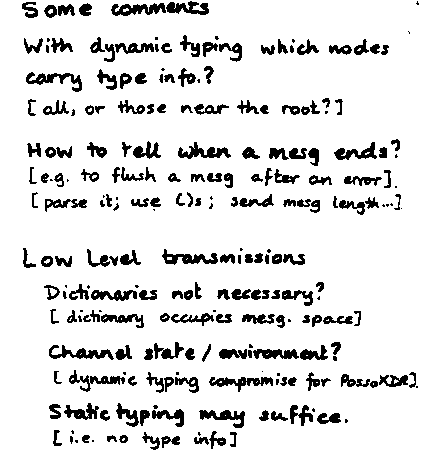 Some comments
With dynamic typing which nodes
carry type info.?
[all, or those near the root?]
How to tell when a mesg ends?
[e.g. to flush a mesg after an error].
[parse it; use ()s; send mesg length...]
Low Level transmissions
Dictionaries not necessary?
[dictionary occupies mesg. space]
Channel state / environment?
[dynamic typing compromise for PossoXDR].
Static typing may suffice.
[i.e. no type info]